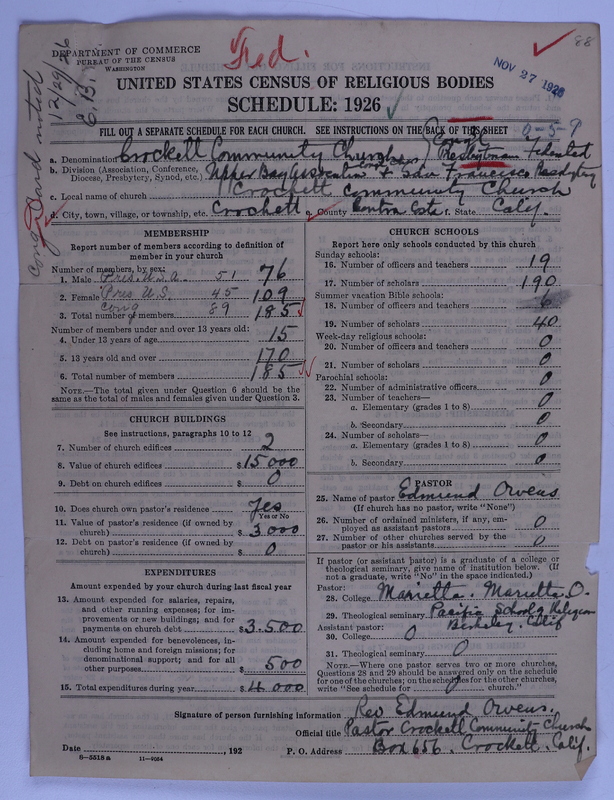 88
DEPARTMENT OF COMMERCE
BUREAU OF THE CENSUS
WASHINGTON
Fed.
NOV 27 1926
Card noted
12/29/26
E.B.
Cong
UNITED STATES CENSUS OF RELIGIOUS BODIES
SCHEDULE: 1926
FILL OUT A SEPARATE SCHEDULE FOR EACH CHURCH. SEE INSTRUCTIONS ON THE BACK OF THIS SHEET
0-5-9
a. Denomination Crockett Community Church Presbyterian Federated
b. Division (Association, Conference, Diocese, Presbytery, Synod, etc.) Upper Bay Association & San Francisco Presbytery
c. Local name of church Crockett Community Church
d. City, town, village, or township, etc. Crockett e. County Contra Costa f. State Calif.
MEMBERSHIP
Report number of members according to definition of
member in your church
Number of members, by sex:
1. Male 76
Pres. U.S.A. 51
2. Female 109
Pres. U.S. 45
3. Total number of members 185
Cong 89
Number of members under and over 13 years old:
4. Under 13 years of age 15
5. 13 years old and over 170
6. Total number of members 185
NOTE.—The total given under Question 6 should be the
same as the total of males and females given under Question 3.
CHURCH BUILDINGS
See instructions, paragraphs 10 to 12
7. Number of church edifices 2
8. Value of church edifices $15000
9. Debt on church edifices $0
10. Does church own pastor's residence Yes
Yes or No
11. Value of pastor's residence (if owned by
church) $3000
12. Debt on pastor's residence (if owned by
church) $0
EXPENDITURES
Amount expended by your church during last fiscal year
13. Amount expended for salaries, repairs,
and other running expenses; for im-
provements or new buildings; and for
payments on church debt $3.500
14. Amount expended for benevolences, in-
cluding home and foreign missions; for
denominational support; and for all
other purposes $500
15. Total expenditures during year $4000
CHURCH SCHOOLS
Report here only schools conducted by this church
Sunday schools:
16. Number of officers and teachers 19
17. Number of scholars 190
Summer vacation Bible schools:
18. Number of officers and teachers 6
19. Number of scholars 40
Week-day religious schools:
20. Number of officers and teachers 0
21. Number of scholars 0
Parochial schools:
22. Number of administrative officers 0
23. Number of teachers—
a. Elementary (grades 1 to 8) 0
b. Secondary 0
24. Number of scholars—
a. Elementary (grades 1 to 8) 0
b. Secondary 0
PASTOR
25. Name of pastor Edmund Owens
(If church has no pastor, write "None")
26. Number of ordained ministers, if any, em-
ployed as assistant pastors 0
27. Number of other churches served by the
pastor or his assistants 0
If pastor (or assistant pastor) is a graduate of a college or
theological seminary, give name of institution below. (If
not a graduate, write "No" in the space indicated.)
Pastor:
28. College Marietta. Marietta, O.
29. Theological seminary Pacific School of Religion
Berkeley. Calif
Assistant pastor:
30. College 0
31. Theological seminary 0
NOTE.—Where one pastor serves two or more churches,
Questions 28 and 29 should be answered only on the schedule
for one of the churches; on the schedules for the other churches,
write "See schedule for church."
Signature of person furnishing information Rev Edmund Owens.
Official title Pastor Crockett Community Church
Date , 192 P. O. Address Box 656. Crockett. Calif.
8-5518 a 11-9054